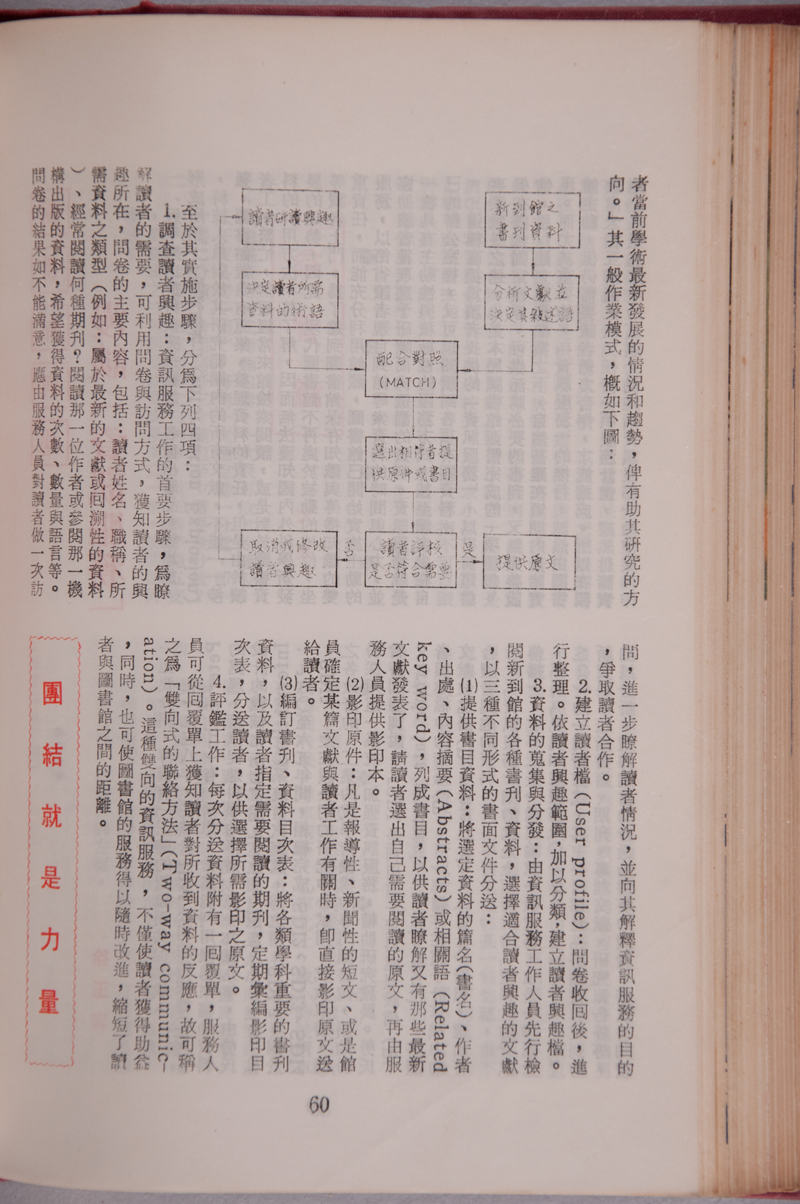 者當前學術最新發展的情況和趨勢，俾有助其研究的方
向。」其一般作業模式，概如下圖：
新到館之
書刊資料
分析文獻並
決定其敘述語
讀者研讀興趣
決定讀者所需
資料的術語
配合對照
(MATCH)
選出相符者提
供原件或書目
讀者評核
是否符合需要
是
提供原文
否
取消或修改
讀者興趣
至於其實施步驟，分為下列四項：
1.調查讀者興趣：資訊服務工作的首要步驟，為瞭
解讀者的需要，可利用問卷與訪問方式，獲知讀者的興
趣所在，問卷的主要內容，包括：讀者姓名、職稱、所
需資料之類型（例如：屬於最新的文獻或囘溯性的資料
）、經常閱讀何種期刊？閱讀那一位作者或參閱那一機
構出版的資料，希望獲得資料的次數、數量與語言等。
問卷的結果如不能滿意，應由服務人員對讀者做一次訪
問，進一步瞭解讀者情況，並向其解釋資訊服務的目的
，爭取讀者合作。
2.建立讀者檔(User profile)：問卷收囘後，進
行整理。依讀者興趣範圍，加以分類，建立讀者興趣檔。
3.資料的蒐集與分發：由資訊服務工作人員先行檢
閱新到館的各種書刊、資料，選擇適合讀者興趣的文獻
，以三種不同形式的書面文件分送：
(1)提供書目資料：將選定資料的篇名(書名)、作者
、出處、內容摘要(Abstracts)或相關語（Related
key word)，列成書目，以供讀者瞭解又有那些最新
文獻發表了，請讀者選出自己需要閱讀的原文，再由服
務人員提供影印本。
(2)影印原件：凡是報導性、新聞性的短文、或是館
員確定某篇文獻與讀者工作有關時，卽直接影印原文送
給讀者。
(3)編訂書刊、資料目次表：將各類學科重要的書刊
資料，以及讀者指定需要閱讀的期刊，定期彙編影印目
次表，分送讀者，以供選擇所需影印之原文。
4.評鑑工作：每次分送資料附有一囘覆單，服務人
員可從囘覆單上獲知讀者對所收到資料的反應，故可稱
之為「雙向式的聯絡方法」(Two-way communic-
ation)。這種雙向的資訊服務，不僅使讀者獲得助益
，同時，也可使圖書館的服務得以隨時改進，縮短了讀
者與圖書館之間的距離。
團結就是力量
60